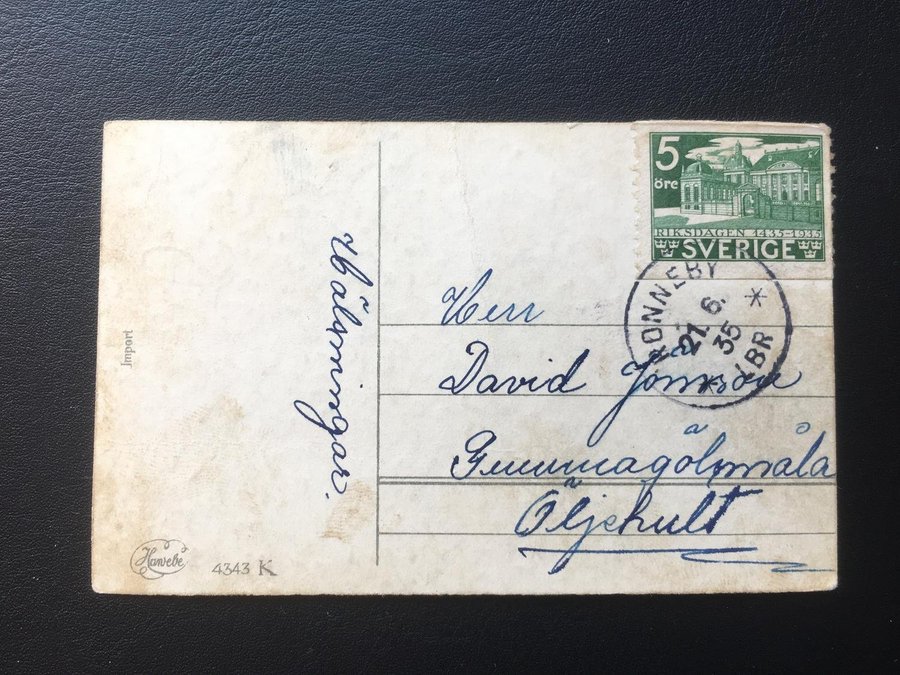 5
öre
RIKSDAGEN 1435-1935
SVERIGE
RONNEBY
21. 6.
35
LBR
Hälsningar.
Herr
David Jönsson
Femmagölsmåla
Öljehult
Import
Hawebe
4343 K